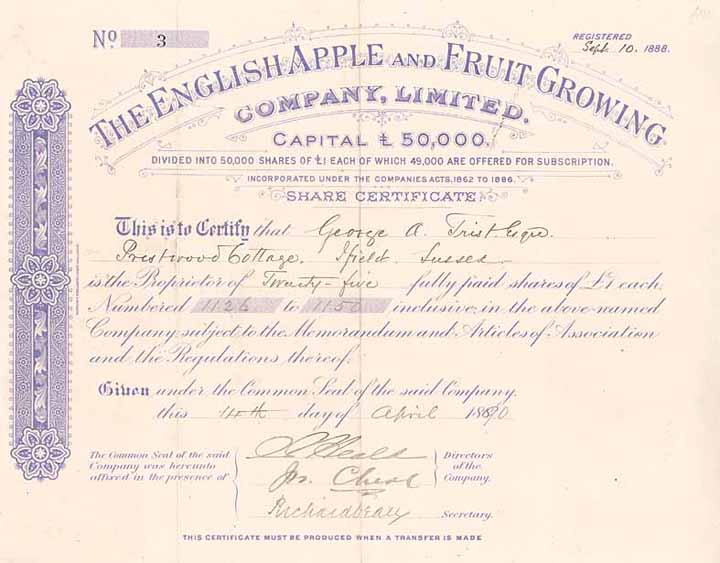 No 3
REGISTERED
Sept. 10. 1888.
THE ENGLISH APPLE AND FRUIT GROWING
COMPANY, LIMITED.
CAPITAL £50,000.
DIVIDED INTO 50,000 SHARES OF £1 EACH OF WHICH 49,000 ARE OFFERED FOR SUBSCRIPTION.
INCORPORATED UNDER THE COMPANIES ACTS, 1862 TO 1886.
SHARE CERTIFICATE
This is to Certify that George A. Trist Esqre.
Prestwood Cottage, Ifield, Sussex
is the Proprietor of Twenty-five fully paid shares of £1 each,
Numbered 1126 to 1150 inclusive, in the above-named
Company, subject to the Memorandum and Articles of Association
and the Regulations thereof.
Given under the Common Seal of the said Company,
this 14th day of April 1890
The Common Seal of the said
Company was hereunto
affixed in the presence of
Directors
of the
Company.
Secretary.
THIS CERTIFICATE MUST BE PRODUCED WHEN A TRANSFER IS MADE